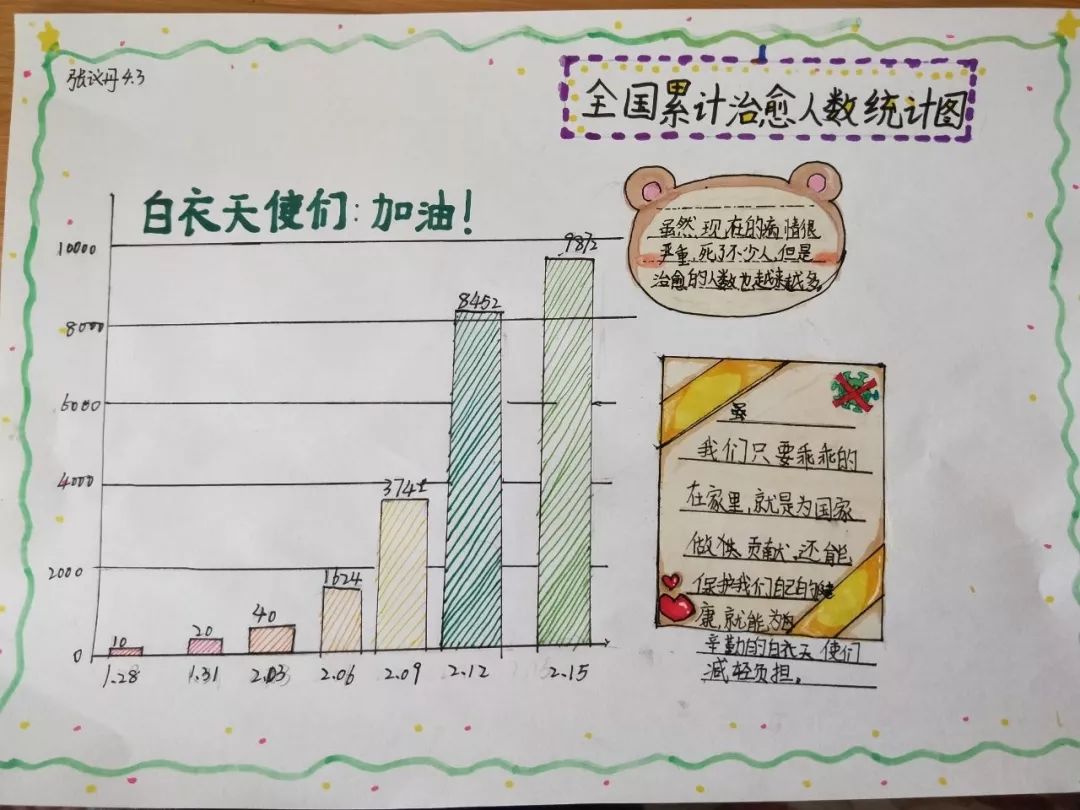 张议丹4.3
全国累计治愈人数统计图
白衣天使们:加油!
虽然,现在的病情很
严重,死了不少人,但是
治愈的人数也越来越多。
10000
8000
6000
4000
2000
0
10
20
40
1624
8452
1.28
1.31
2.03
2.06
2.09
2.12
2.15
我们只要乖乖的
在家里,就是为国家
贡献,还能
保护我们自己的健
康,就能为
辛勤的白衣天使们
减轻负担。